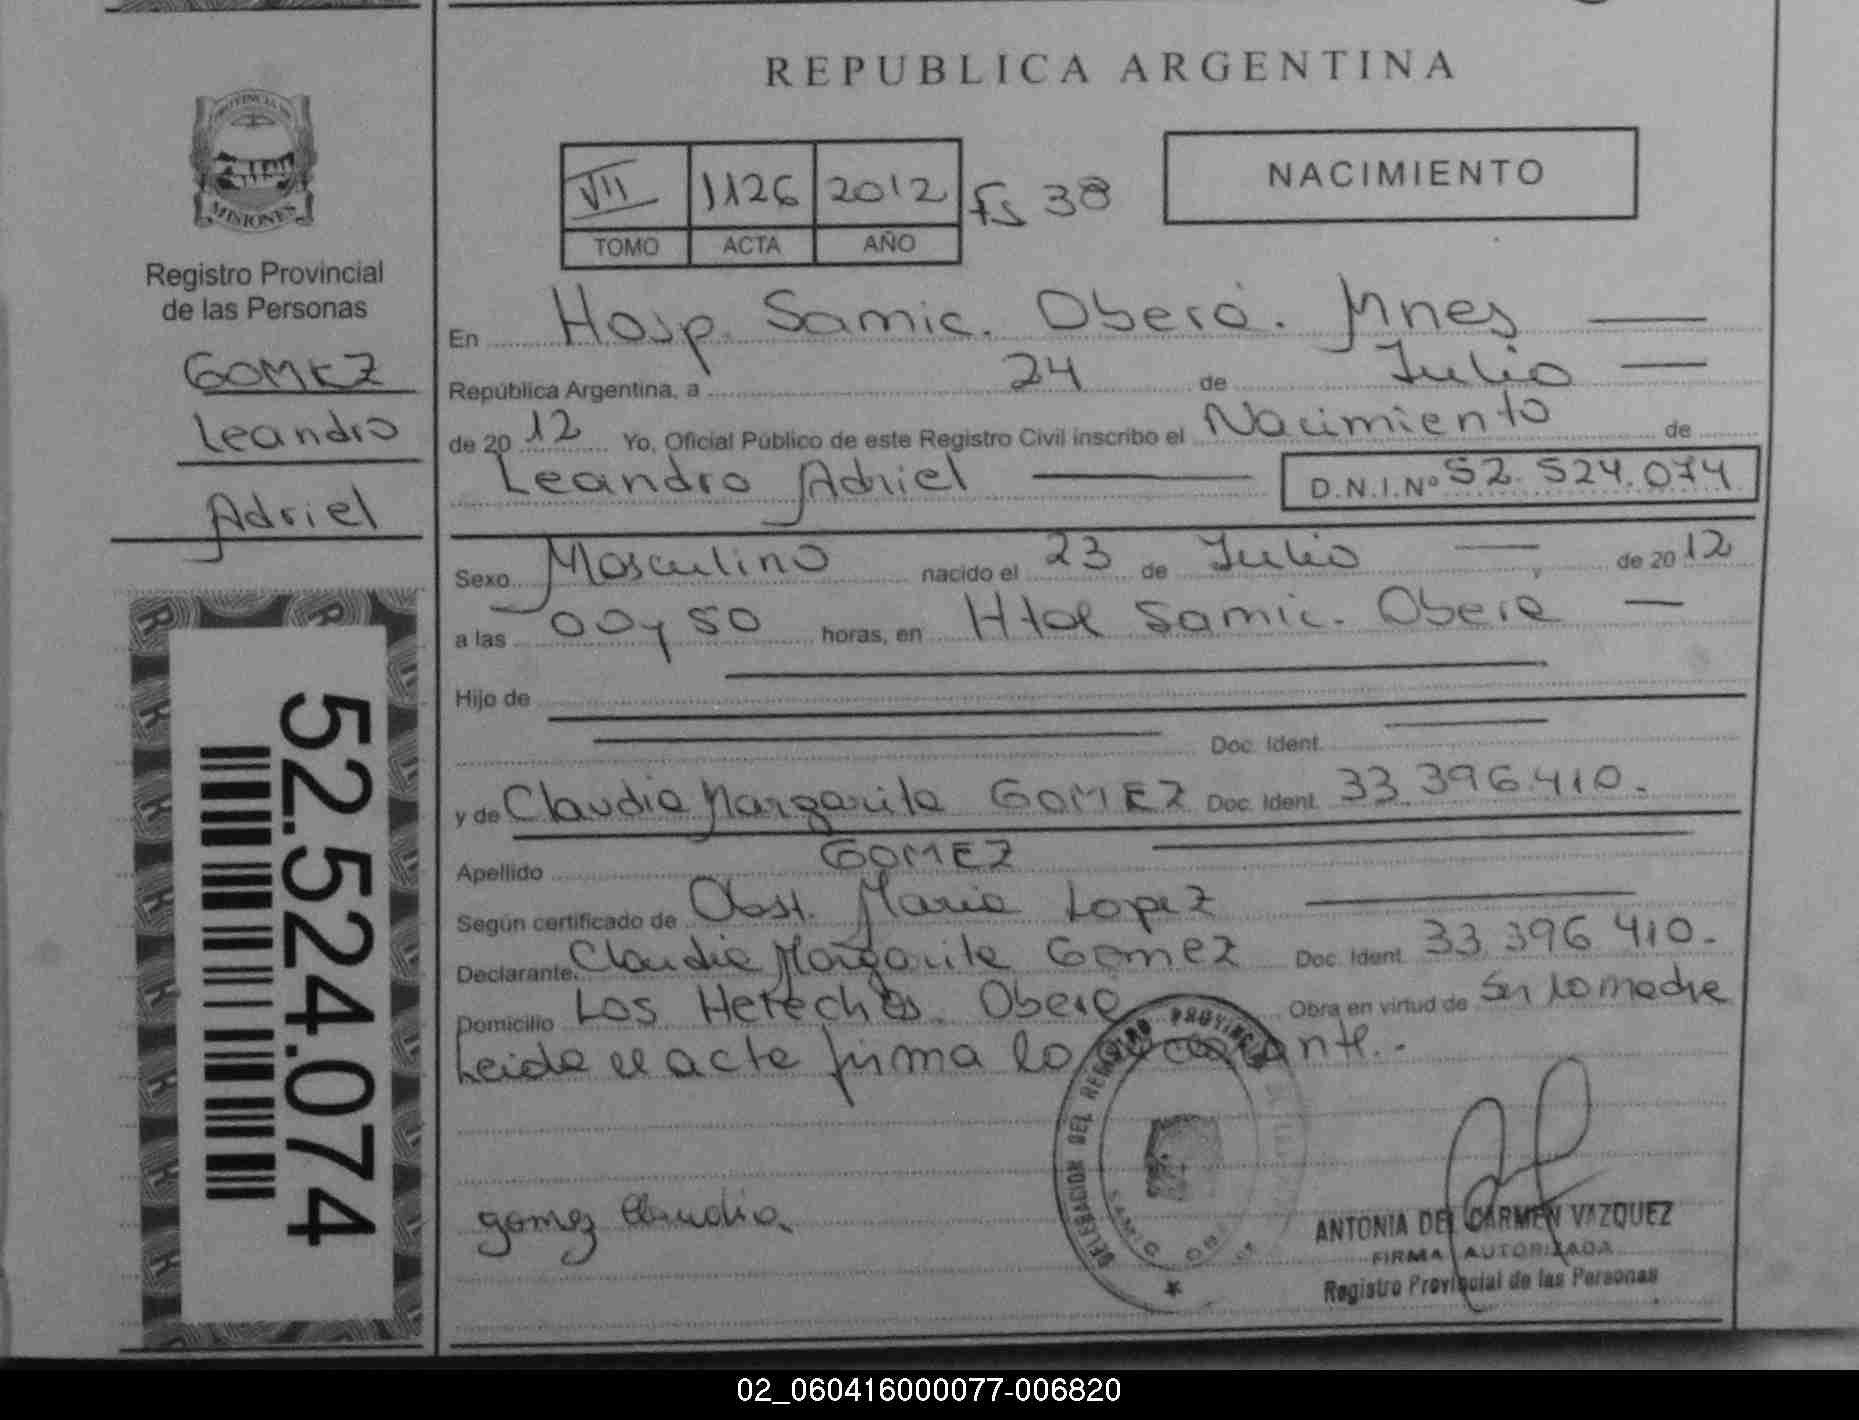 REPUBLICA ARGENTINA
PROVINCIA DE
MISIONES
Registro Provincial
de las Personas
GOMEZ
Leandro
Adriel
52.524.074
VII 1126 2012 Fs 38
TOMO ACTA AÑO
NACIMIENTO
En Hosp. Samic. Oberá. Mnes
República Argentina, a 24 de Julio
de 2012 Yo, Oficial Público de este Registro Civil inscribo el Nacimiento de
Leandro Adriel D.N.I.Nº 52.524.074
Sexo Masculino nacido el 23 de Julio, de 2012
a las 00 y 50 horas, en Htal Samic. Obera
Hijo de
Doc. Ident.
y de Claudia Margarita GOMEZ Doc. Ident. 33.396.410.
Apellido GOMEZ
Según certificado de Obst. Maria Lopez
Declarante Claudia Margarita Gomez Doc. Ident. 33.396.410.
Domicilio Los Helechos. Obera Obra en virtud de Ser la madre
Leida el acta firma la declarante.-
gomez Claudia.
DELEGACION DEL REGISTRO PROVINCIAL
SAMIC
ANTONIA DEL CARMEN VAZQUEZ
FIRMA AUTORIZADA
Registro Provincial de las Personas
02_060416000077-006820